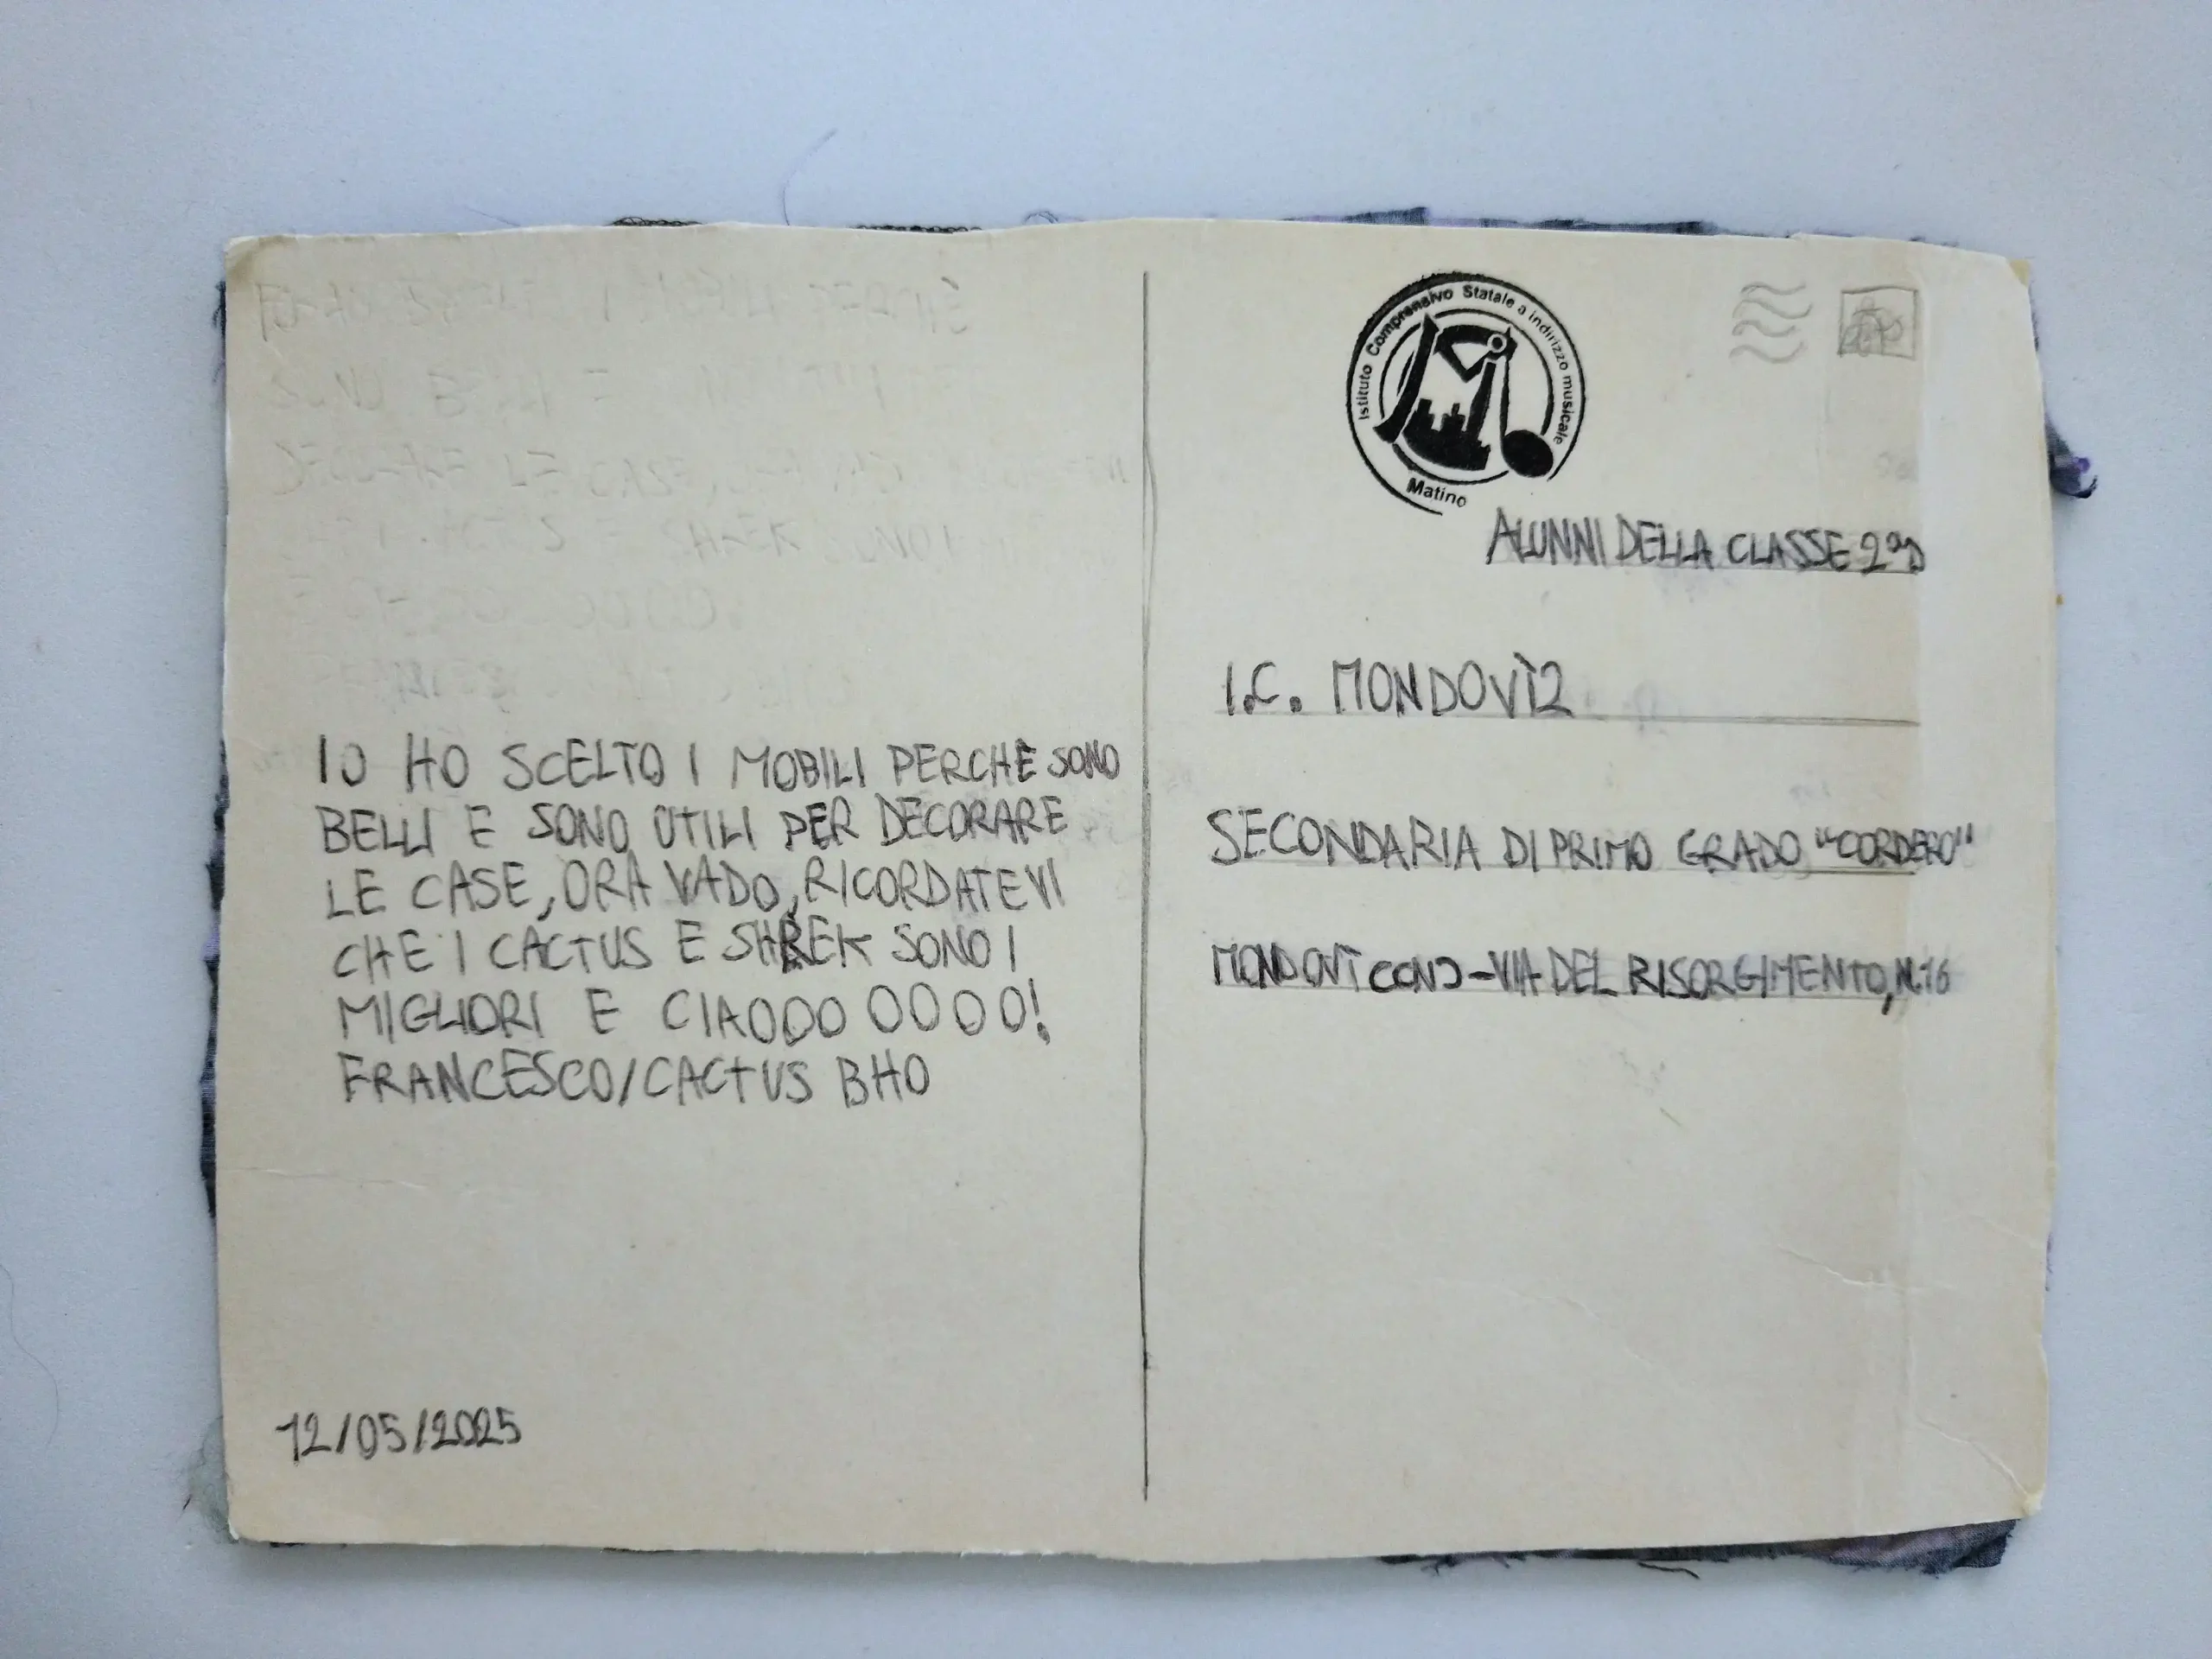 IO HO SCELTO I MOBILI PERCHÈ SONO
BELLI E SONO UTILI PER DECORARE
LE CASE, ORA VADO, RICORDATEVI
CHE I CACTUS E SHREK SONO I
MIGLIORI E CIAOOO OOOO!
FRANCESCO/CACTUS BHO
12/05/2025
Istituto Comprensivo Statale a indirizzo musicale
Matino
ALUNNI DELLA CLASSE 2ªD
I.C. MONDOVÌ2
SECONDARIA DI PRIMO GRADO "CORDERO"
MONDOVÌ - VIA DEL RISORGIMENTO, N.16